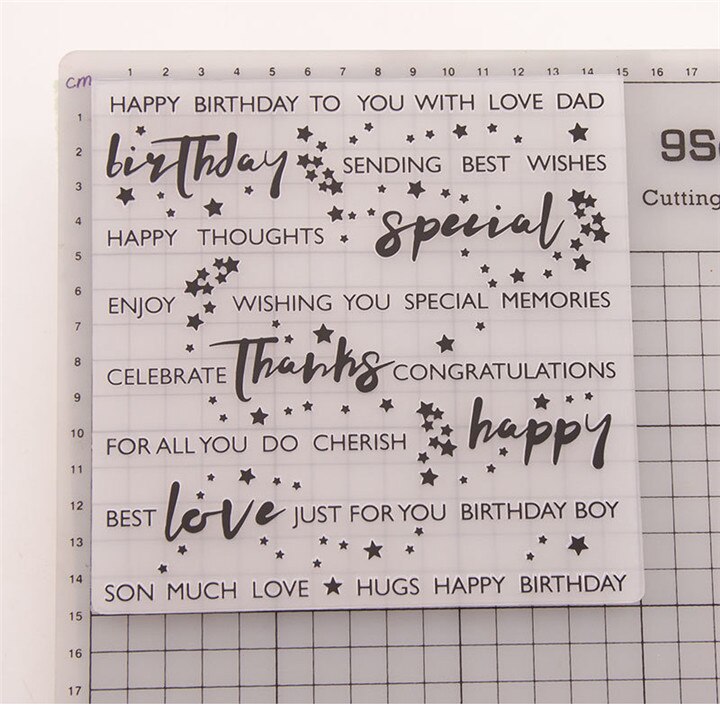 cm
1 2 3 4 5 6 7 8 9 10 11 12 13 14 15 16 17
HAPPY BIRTHDAY TO YOU WITH LOVE DAD
birthday SENDING BEST WISHES
HAPPY THOUGHTS special
ENJOY WISHING YOU SPECIAL MEMORIES
CELEBRATE Thanks CONGRATULATIONS
FOR ALL YOU DO CHERISH happy
BEST love JUST FOR YOU BIRTHDAY BOY
SON MUCH LOVE HUGS HAPPY BIRTHDAY
1
2
3
4
5
6
7
8
9
10
11
12
13
14
15
16
17
Cutting